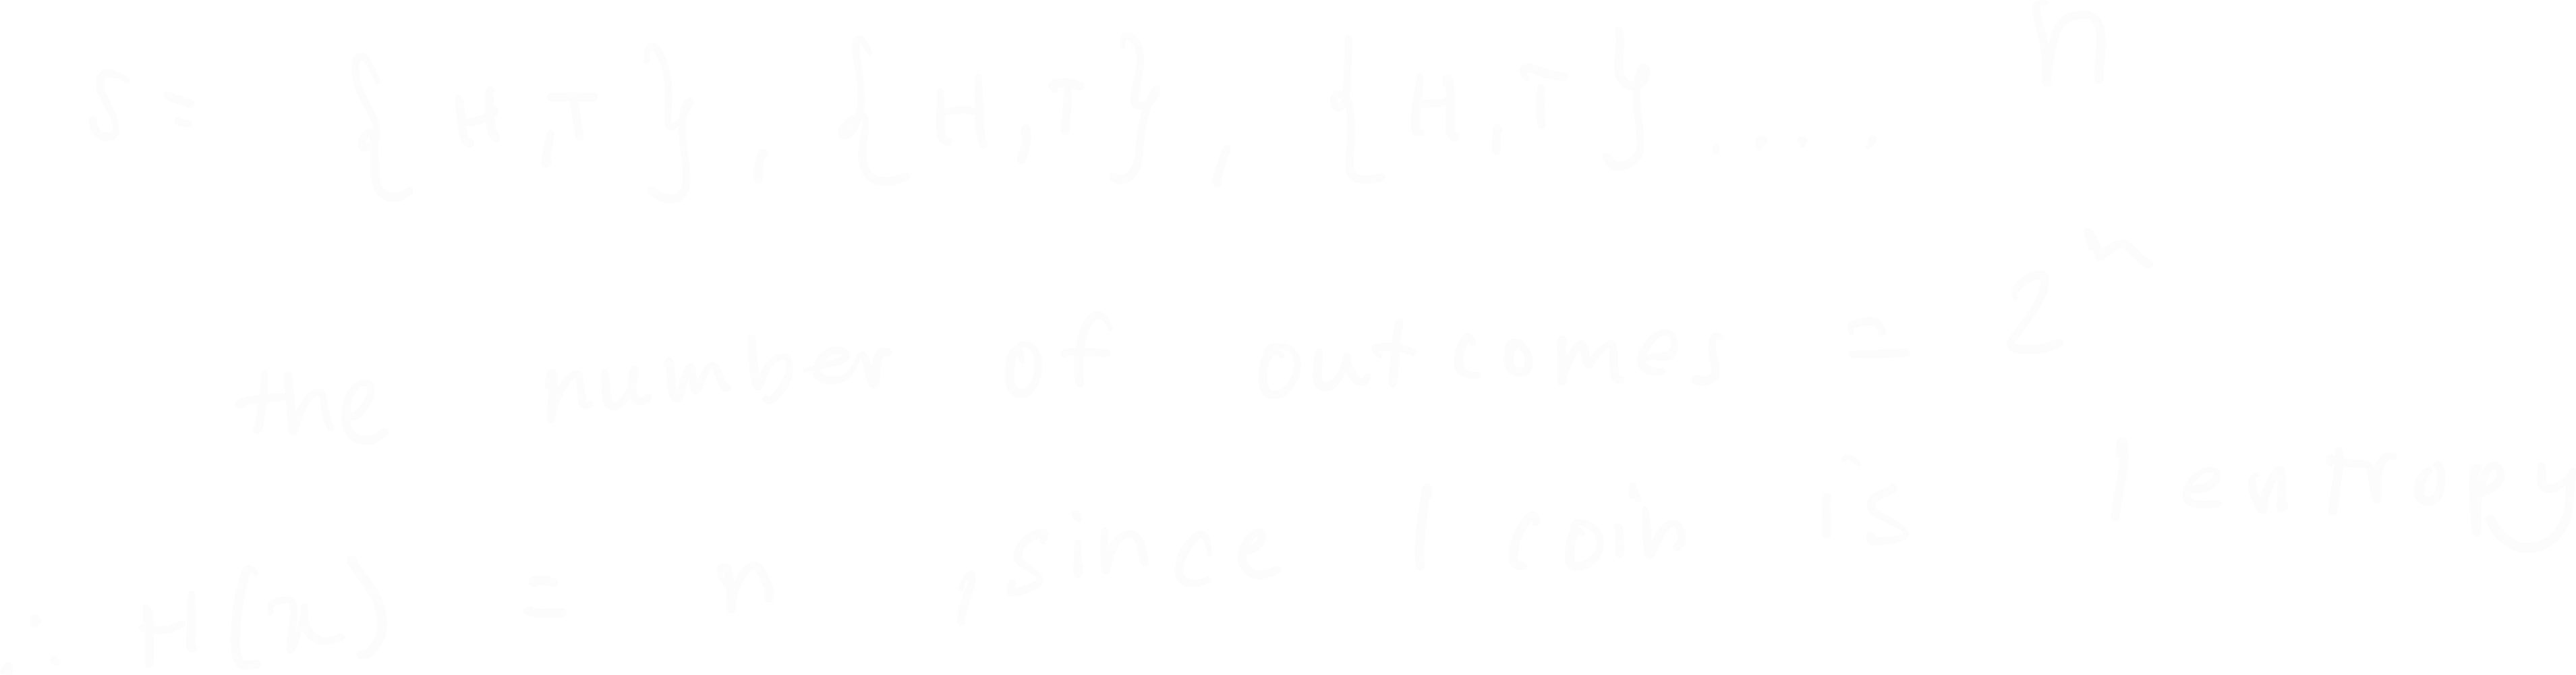 S= {H,T}, {H,T}, {H,T} .... n
the number of outcomes = 2^n
∴ H(x) = n , since 1 coin is 1 entropy